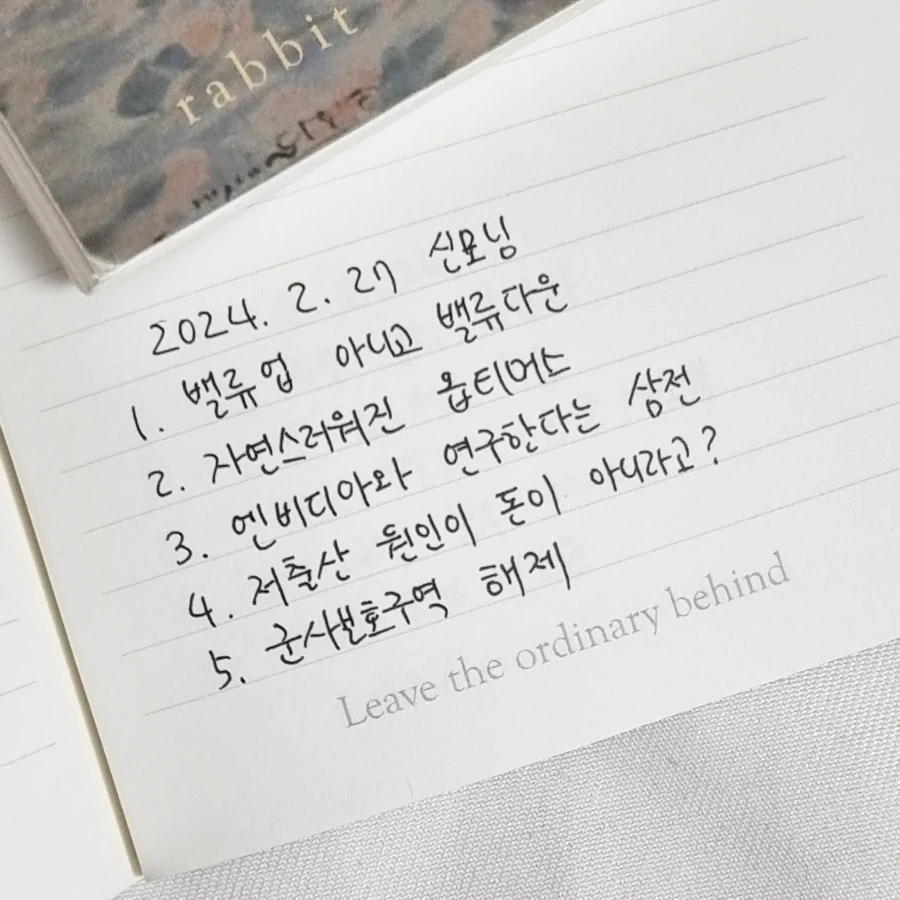 rabbit
2024. 2. 27 신모닝
1. 밸류업 아니고 밸류다운
2. 자연스러워진 옵티머스
3. 엔비디아와 연구한다는 삼전
4. 저출산 원인이 돈이 아니라고?
5. 군사보호구역 해제
Leave the ordinary behind